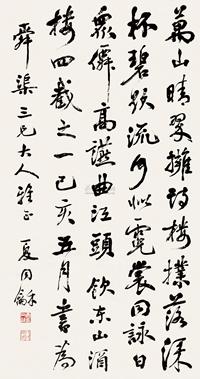 萬山晴翠擁詩樓撲落深
杯碧欲流何似霓裳同詠日
眾仙高讌曲江頭飲東山酒
樓四截之一己亥五月書為
舜渠三兄大人雅正
夏同龢